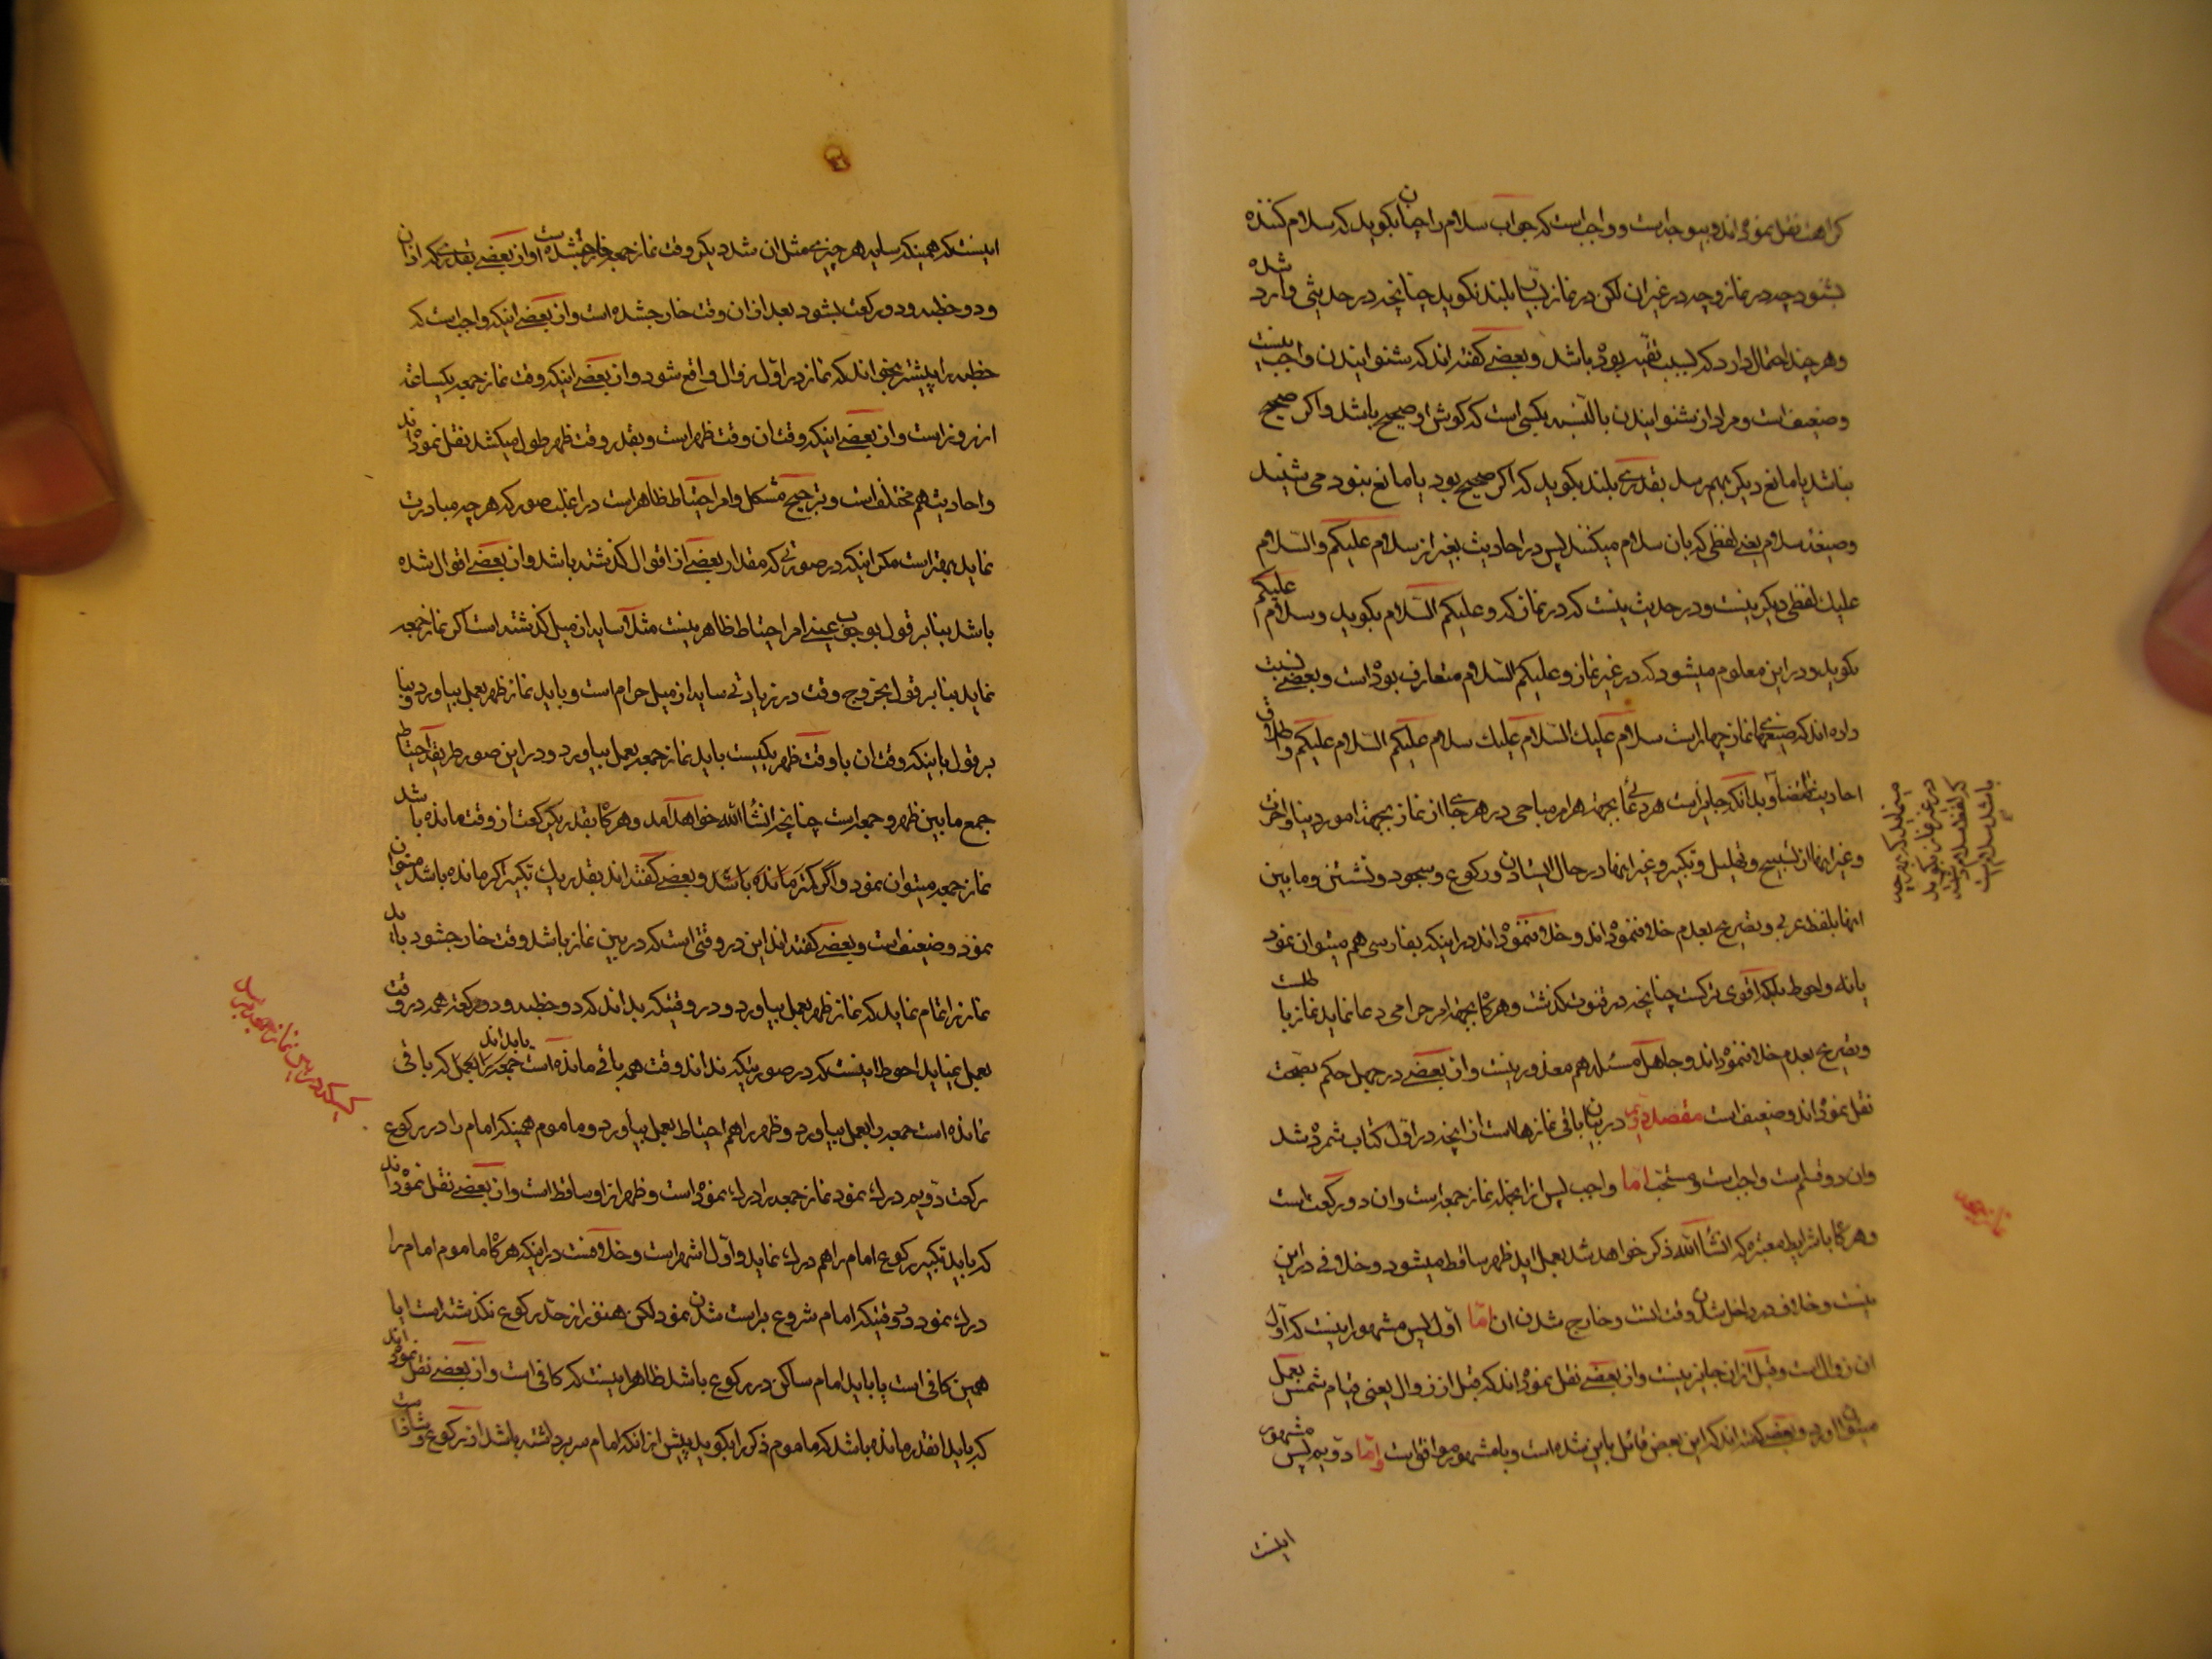 کراهت نقل نموده اند و بیوجه است و واجب است که جواب سلام را چنان بکوید که سلام کننده
بشنود چه در نماز و چه در غیر ان لکن در نماز بسیار بلند نکوید چنانچه در حدیثی وارد شده
وهر چند احتمال دارد که بسبب تقیه بوده باشد و بعضے کفته اند که شنوانیدن واجب نیست
وضعیف است و مراد از شنوانیدن بالنسبه بکسی است که کوش او صحیح باشد و اکر صحیح
نباشد یا مانع دیکر بهم رسد بقدرے بلند بکوید که اکر صحیح بود یا مانع نبود می شنید
وصیغهٔ سلام یعنے لفظی که بان سلام میکنند پس در احادیث بغیر از سلام علیکم والسّلام
علیك لفظی دیکر نیست و در حدیث نیست که در نماز که وعلیکم السّلام بکوید و سلام علیکم
بکوید و در این معلوم میشود که در غیر نماز وعلیکم السّلام متعارف بوده است و بعضے نسبت
داده اند که صیغهای نماز چهار است سلام علیك السّلام علیك سلام علیکم السّلام علیکم و اطلاق
احادیث و بدانکه جایز است هر دعائے بجهة هر امر مباحی در هر جاے از نماز بجهة امور دنیا و اخرت
و غیر اینها از تسبیح و تهلیل و تکبیر و غیر اینها در حال ایستادن و رکوع و سجود و نشستن و مابین
اینها بلفظ عربی و تصریح بعدم خلاف نموده اند و خلاف نموده اند در اینکه بفارسی هم میتوان نمود
یا نه و احوط بلکه اقوی ترکست چنانچه در قنوت کذشت و هرکاه بجهة امر حرامی دعا نماید نماز باطلست
و تصریح بعدم خلاف نموده اند و جاهل مسئله هم معذور نیست و از بعضے در جهل حکم بصحت
نقل نموده اند و ضعیف است مقصد دویم در بیان باقی نمازهاست از انچه در اوّل کتاب شمرده شد
وان دو قسم است واجب است و مستحب امّا واجب پس از انجمله نماز جمعه است وان دو رکعت است
وهرکاه باشرایط معتبره که انشاالله ذکر خواهد شد بعمل اید ظهر ساقط میشود و خلافی در این
نیست و خلاف در داخل شدن وقت انست و خارج شدن ان امّا اوّل پس مشهور اینست که اوّل
ان زوال است و قبل از ان جایز نیست و از بعضے نقل نموده اند که قبل از زوال یعنی قیام شمس بعمل
میتوان اورد و بعضے کفته اند که این بعض قائل باین نشده است و با مشهور موافق است و امّا دویم پس مشهور
اینست
نماز جمعه
اینست که همینکه سایه هر چیزے مثل ان شد دیکر وقت نماز جمعه خارج شده است و از بعضے بقدرے که اذان
و دو خطبه و دو رکعت بشود بعد از ان وقت خارج شده است و از بعضے اینکه واجب است که
خطبه را پیشتر بخواند که نماز در اوّل زوال واقع شود و از بعضے اینکه وقت نماز جمعه یکساعت
از روز است و از بعضے اینکه وقت ان وقت ظهر است و بقدر وقت ظهر طول میکشد نقل نموده اند
و احادیث هم مختلف است و ترجیح مشکل و امر احتیاط ظاهر است در اغلب صور که هر چه مبادرت
نماید بهتر است مکر اینکه در صورتے که مقدار بعضے از اقوال کذشته باشد و از بعضے اقوال نشده
باشد بنا بر قول بوجوب عینے امر احتیاط ظاهر نیست مثلا سایه از میل کذشته است اکر نماز جمعه
نماید بنا بر قول بخروج وقت در زیادتے سایه از میل حرام است و باید نماز ظهر بعمل بیاورد و بنا
بر قول باینکه وقت ان با وقت ظهر یکیست باید نماز جمعه بعمل بیاورد و در این صور طریقهٔ احتیاط
جمع مابین ظهر و جمعه است چنانچه انشاالله خواهد آمد و هرکاه بقدر یکرکعت از وقت مانده باشد
نماز جمعه میتوان نمود و اکر کمتر مانده باشد و بعضے کفته اند بقدر یك تکبیر اکر مانده باشد میتوان
نمود و ضعیف است و بعضے کفته اند این در وقتی است که در بین نماز باشد و وقت خارج شود باید
نماز را تمام نماید که نماز ظهر بعمل بیاورد و در وقتیکه بداند که دو خطبه و دو رکعت همه در وقت
بعمل نمیاید احوط اینست که در صورتیکه نداند وقت همه باقی مانده است جمعه را بعمل که باقی
نمانده است جمعه را بعمل بیاورد و ظهر را هم احتیاط بعمل بیاورد و ماموم همینکه امام را در رکوع
رکعت دویم درك نمود نماز جمعه را درك نموده است و ظهر از او ساقط است و از بعضے نقل نموده اند
که باید تکبیر رکوع امام را هم درك نماید و اوّل اشهر است و خلاف نیست در اینکه هرکاه ماموم امام را
درك نمود در وقتیکه امام شروع براست شدن نمود لکن هنوز از حدّ رکوع نکذشته است ایا
همین کافی است یا باید امام ساکن در رکوع باشد ظاهر اینست که کافی است و از بعضے نقل نموده اند
که باید انقدر مانده باشد که ماموم ذکر را بکوید پیش از انکه امام سر برداشته باشد از رکوع